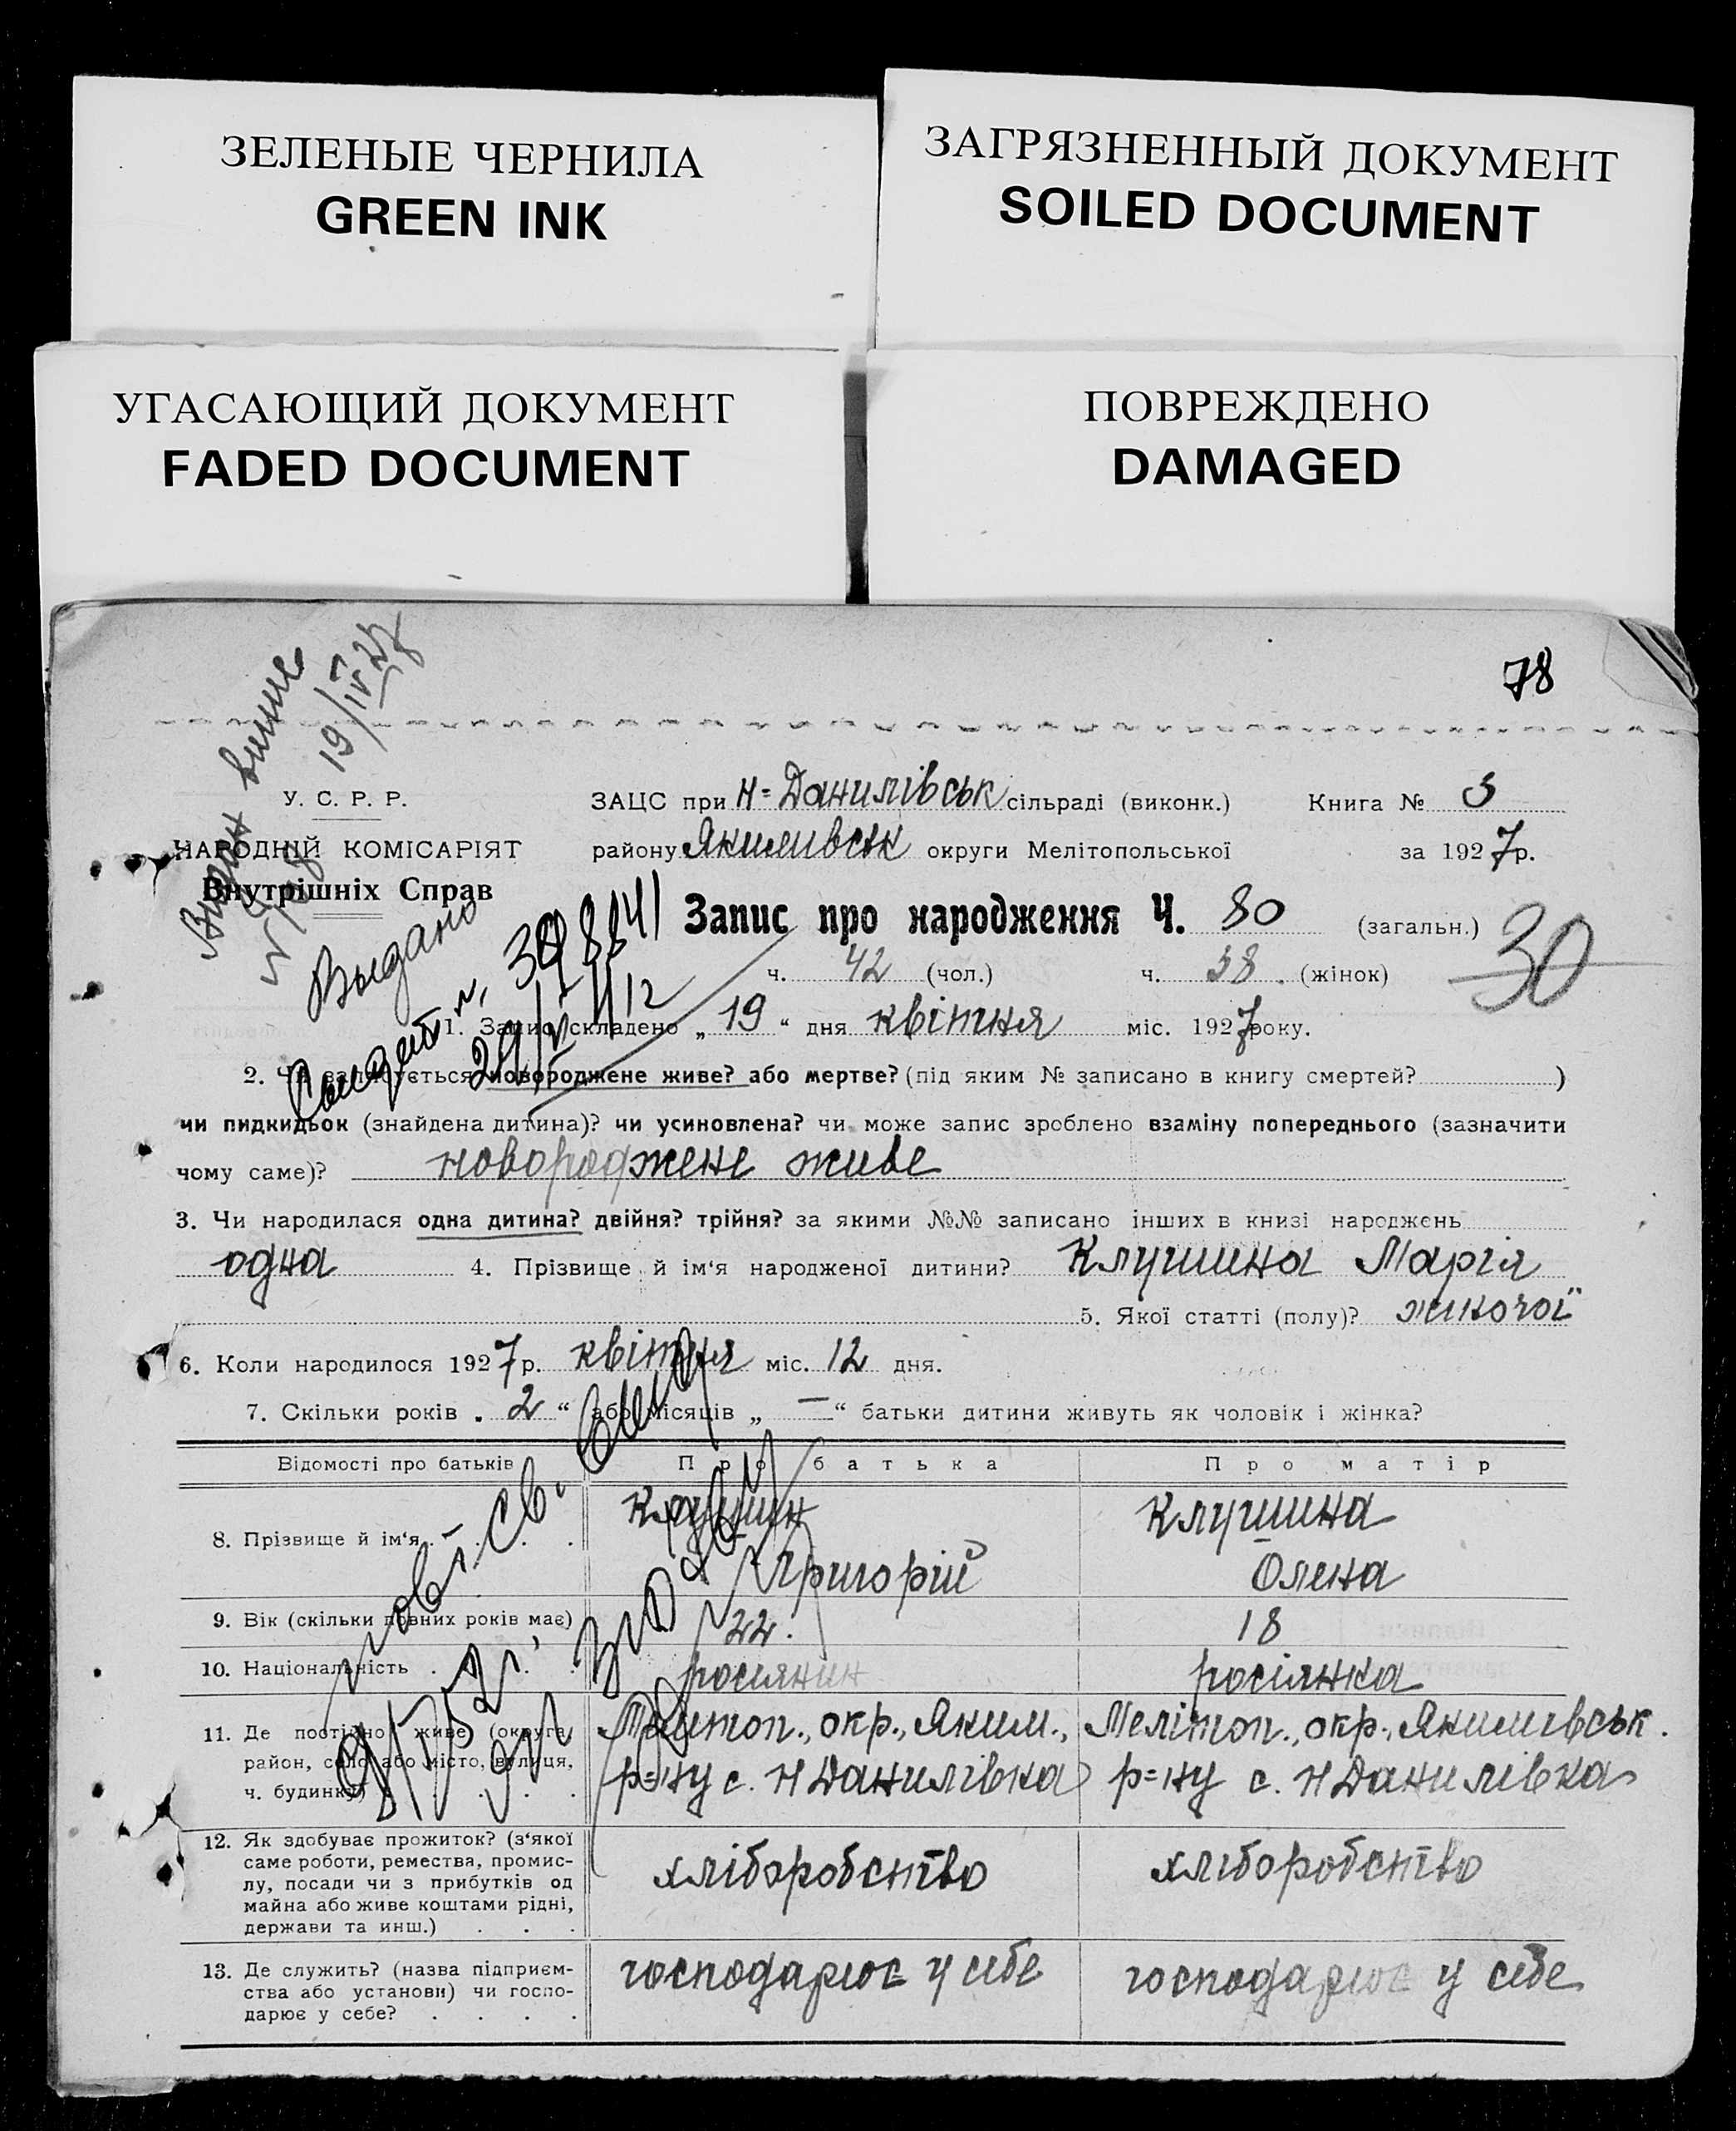 ЗЕЛЕНЫЕ ЧЕРНИЛА
GREEN INK
ЗАГРЯЗНЕННЫЙ ДОКУМЕНТ
SOILED DOCUMENT
УГАСАЮЩИЙ ДОКУМЕНТ
FADED DOCUMENT
ПОВРЕЖДЕНО
DAMAGED
78
19/IV 27
У. С. Р. Р.
НАРОДНІЙ КОМІСАРІЯТ
Внутрішніх Справ
ЗАЦС при Н=Данилівськ сільраді (виконк.) Книга № 3
району Якимивськ округи Мелітопольської за 1927р.
Выдано
Запис про народження Ч. 80 (загальн.)
30
ч. 42 (чол.) ч. 38 (жінок)
1. Запис складено „ 19 “ дня квітня міс. 1927року.
2. Чи записується новороджене живе? або мертве? (під яким № записано в книгу смертей? )
чи пидкидьок (знайдена дитина)? чи усиновлена? чи може запис зроблено взаміну попереднього (зазначити
чому саме)? новороджене живе
3. Чи народилася одна дитина? двійня? трійня? за якими №№ записано інших в книзі народжень
одна 4. Прізвище й ім‘я народженої дитини? Клушина Марія
5. Якої статті (полу)? жиночої
6. Коли народилося 1927р. квітня міс. 12 дня.
7. Скільки років „ 2 “ або місяців „ — “ батьки дитини живуть як чоловік і жінка?
Відомості про батьків Про батька Про матір
8. Прізвище й ім‘я
Клушин
Григорій
Клушина
Олена
9. Вік (скільки повних років має) 22. 18
10. Національність росиянин росіянка
11. Де постійно живе (округа,
район, село або місто, вулиця,
ч. будинку)
Мелитоп., окр., Яким.,
р=ну с. Н Данилівка
Мелітоп., окр., Якимивськ.
р=ну с. Н Данилівка
12. Як здобуває прожиток? (з‘якої
саме роботи, ремества, промис-
лу, посади чи з прибутків од
майна або живе коштами рідні,
держави та инш.)
хліборобство
хліборобство
13. Де служить? (назва підприєм-
ства або установи) чи госпо-
дарює у себе?
господарює у себе
господарює у себе